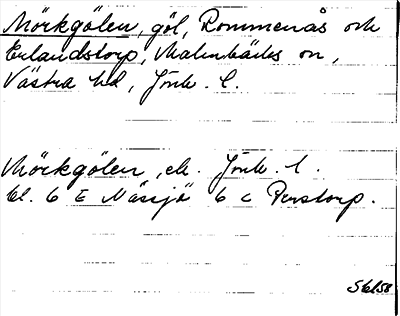 Mörkgölen, göl, Rommenås och
Erlandstorp, Malmbäcks sn,
Västra hd, Jönk. l.
Mörkgölen, ek. Jönk. l.
bl. 6 E Nässjö 6 c Perstorp.